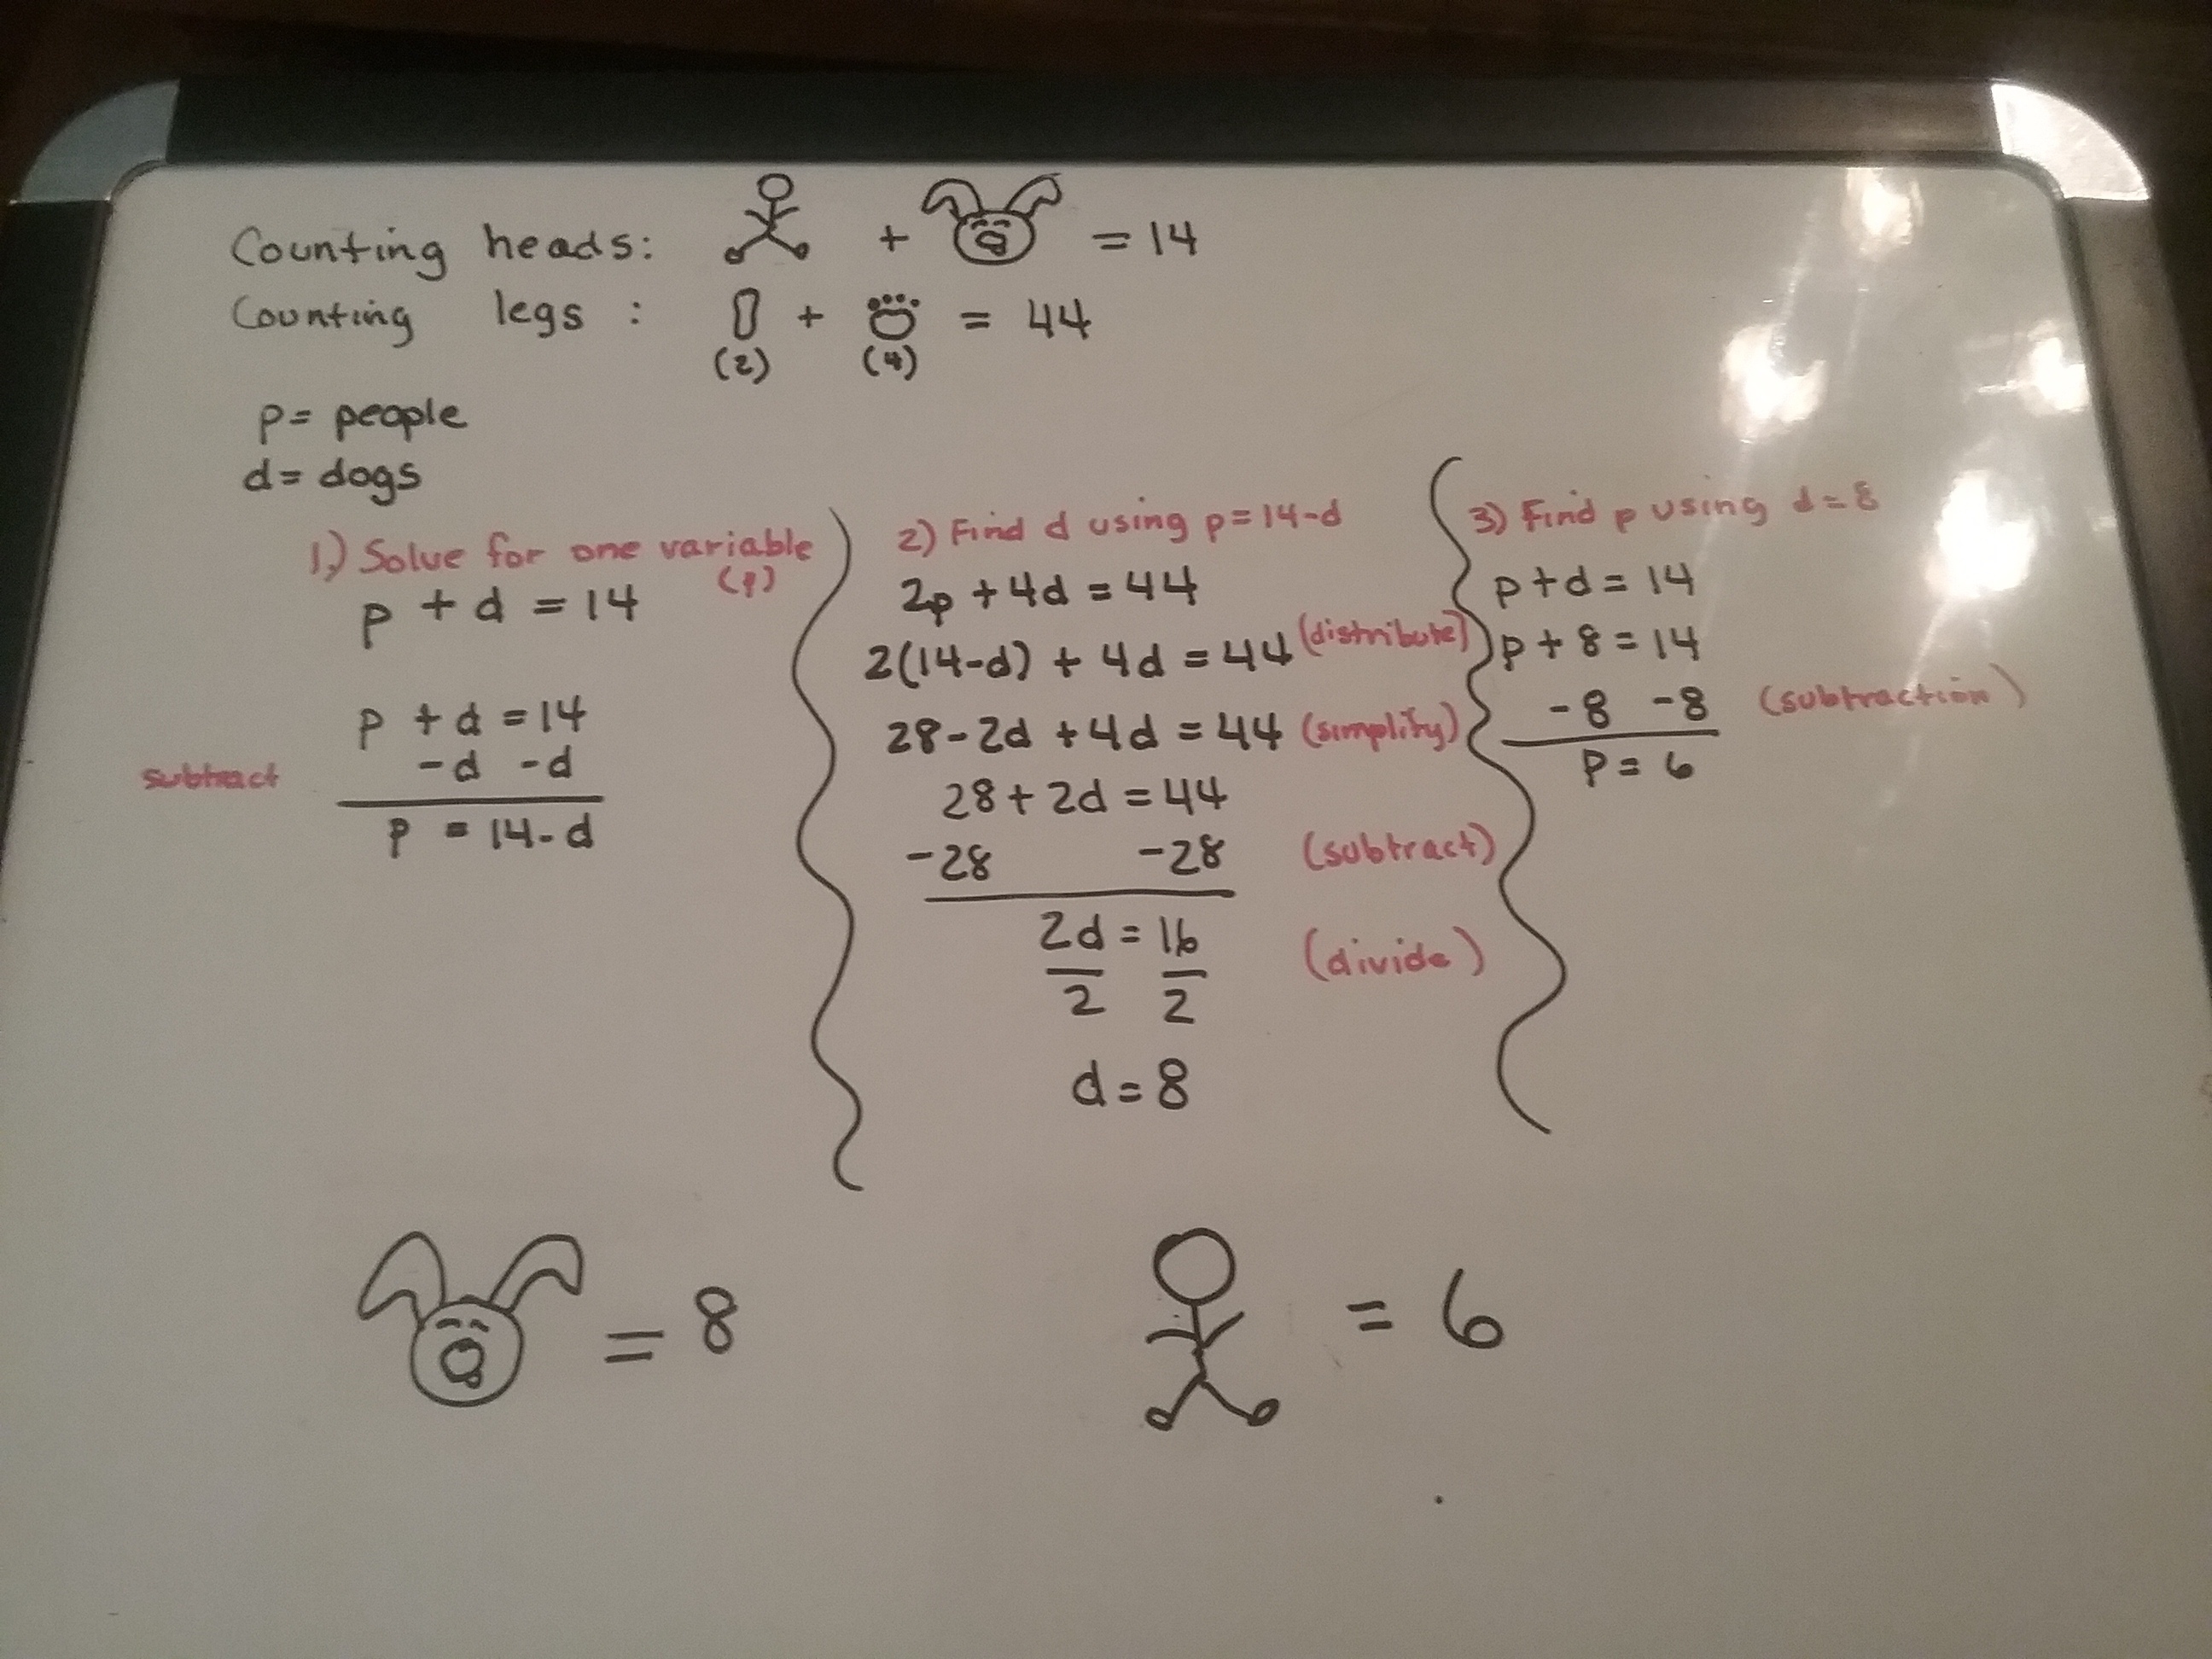 Counting heads: + = 14
Counting legs : + = 44
(2) (4)
p= people
d= dogs
1.) Solve for one variable
(p)
p + d = 14
p + d = 14
subtract -d -d
p = 14-d
2) Find d using p=14-d
2p + 4d = 44
2(14-d) + 4d = 44 (distribute)
28-2d + 4d = 44 (simplify)
28 + 2d = 44
-28 -28 (subtract)
2d = 16
2 2 (divide)
d = 8
3) Find p using d=8
p + d = 14
p + 8 = 14
-8 -8 (subtraction)
P = 6
= 8
= 6